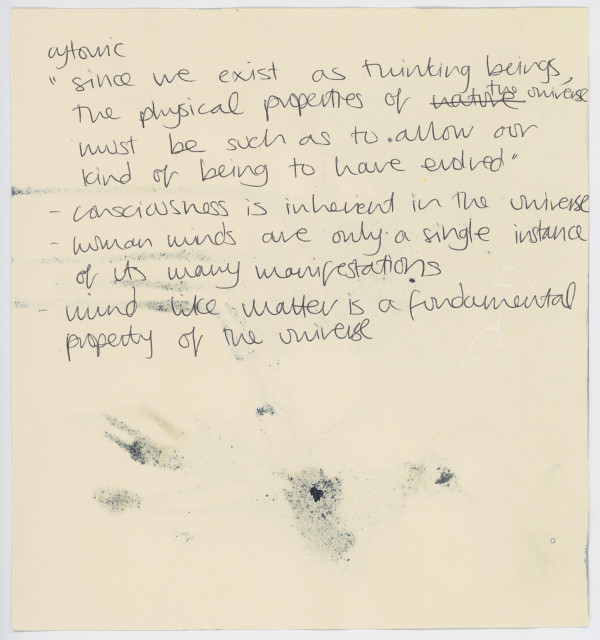 cytowic
" since we exist as thinking beings,
the physical properties of ~~nature~~ the universe
must be such as to allow our
kind of being to have evolved"
- consciousness is inherent in the universe
- human minds are only a single instance
of its many manifestations
- mind like matter is a fundamental
property of the universe